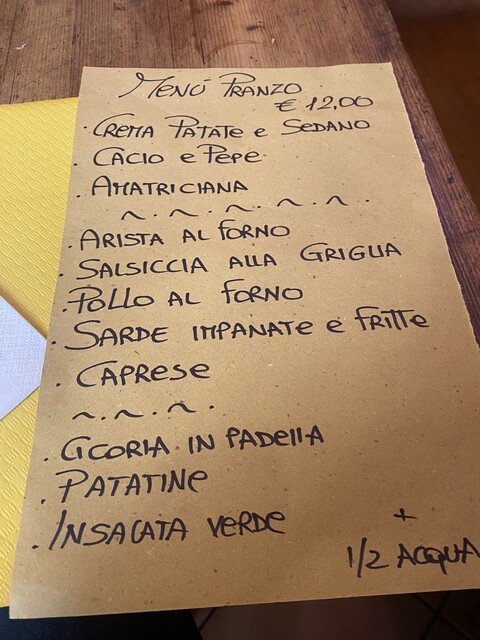 Menú Pranzo
€ 12,00
· Crema Patate e Sedano
· Cacio e Pepe
· Amatriciana
~ . ~ . ~ . ~ . ~ .
· Arista al forno
· Salsiccia alla Griglia
· Pollo al forno
· Sarde impanate e fritte
· Caprese
~ . ~ . ~ .
· Cicoria in padella
· Patatine
· Insalata verde
+
1/2 Acqua